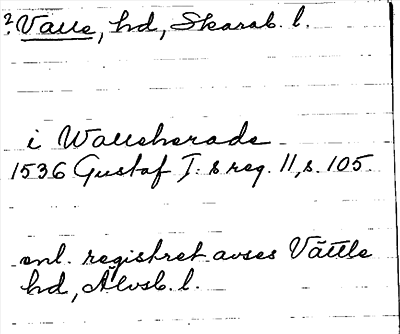 ? Valle, hd, Skarab. l.
i Walleherade
1536 Gustaf I:s reg. 11, s. 105.
enl. registret avses Vättle
hd, Älvsb. l.